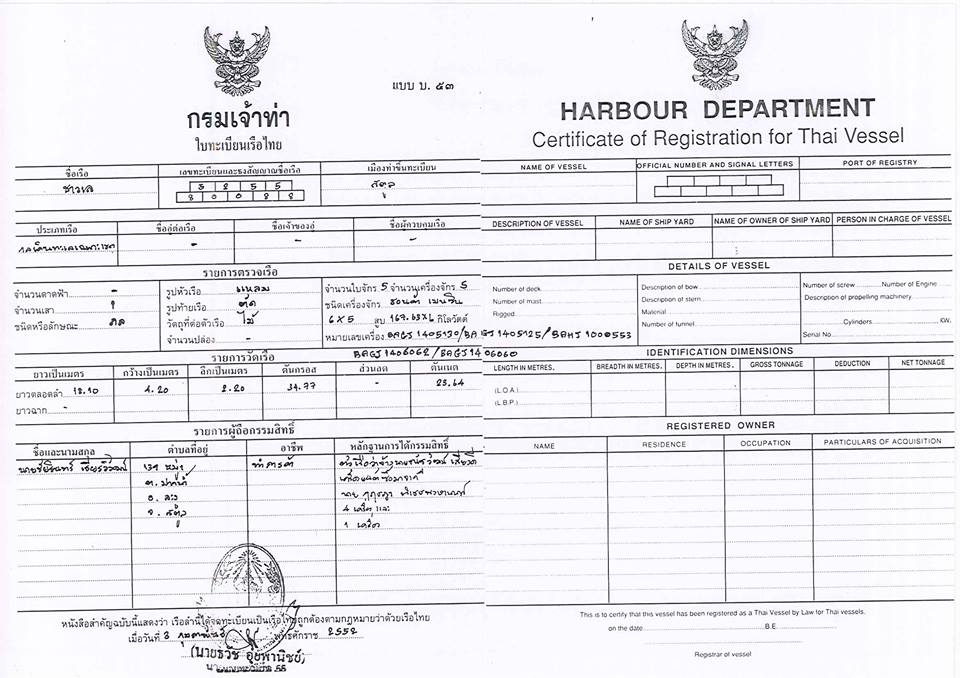 แบบ บ. ๕๓
กรมเจ้าท่า
ใบทะเบียนเรือไทย
ชื่อเรือ เลขทะเบียนและธงสัญญาณชื่อเรือ เมืองท่าขึ้นทะเบียน
ชาวเล 3 2 5 5 สตูล
ประเภทเรือ ชื่ออู่ต่อเรือ ชื่อเจ้าของอู่ ชื่อผู้ควบคุมเรือ
- - -
รายการตรวจเรือ
จำนวนดาดฟ้า - รูปหัวเรือ แหลม จำนวนใบจักร 5 จำนวนเครื่องจักร 5
จำนวนเสา 1 รูปท้ายเรือ ตัด ชนิดเครื่องจักร
ชนิดหรือลักษณะ วัตถุที่ต่อตัวเรือ ไม้ 6 X 5 สูบ กิโลวัตต์
จำนวนปล่อง - หมายเลขเครื่อง BAGJ 1405130/BAGJ 1405125/BAHJ 1000553
BAGJ 1406062/BAGJ 1406060
รายการวัดเรือ
ยาวเป็นเมตร กว้างเป็นเมตร ลึกเป็นเมตร ตันกรอส ส่วนลด ตันเนต
ยาวตลอดลำ 18.10 4.20 2.20 34.77 - 23.64
ยาวฉาก -
รายการผู้ถือกรรมสิทธิ์
ชื่อและนามสกุล ตำบลที่อยู่ อาชีพ หลักฐานการได้กรรมสิทธิ์
134 หมู่ 1 ทำการค้า
ต. ปากน้ำ
อ. ละงู
จ. สตูล 4 เครื่อง และ
1 เครื่อง
หนังสือสำคัญฉบับนี้แสดงว่า เรือลำนี้ได้จดทะเบียนเป็นเรือไทยถูกต้องตามกฎหมายว่าด้วยเรือไทย
เมื่อวันที่ 3 กุมภาพันธ์ พุทธศักราช 2552
(นายธวัช อุยพานิชย์)
HARBOUR DEPARTMENT
Certificate of Registration for Thai Vessel
NAME OF VESSEL OFFICIAL NUMBER AND SIGNAL LETTERS PORT OF REGISTRY
DESCRIPTION OF VESSEL NAME OF SHIP YARD NAME OF OWNER OF SHIP YARD PERSON IN CHARGE OF VESSEL
DETAILS OF VESSEL
Number of deck Description of bow Number of screw Number of Engine
Number of mast Description of stern Description of propelling machinery
Rigged Material Cylinders KW.
Number of funnel Serial No.
IDENTIFICATION DIMENSIONS
LENGTH IN METRES. BREADTH IN METRES. DEPTH IN METRES. GROSS TONNAGE DEDUCTION NET TONNAGE
(L.O.A.)
(L.B.P.)
REGISTERED OWNER
NAME RESIDENCE OCCUPATION PARTICULARS OF ACQUISITION
This is to certify that this vessel has been registered as a Thai Vessel by Law for Thai vessels.
on the date B.E.
Registrar of vessel